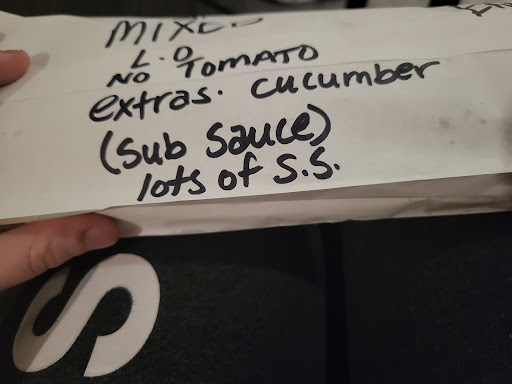 MIXED
L.O
NO TOMATO
extras. cucumber
(Sub Sauce)
lots of S.S.
S